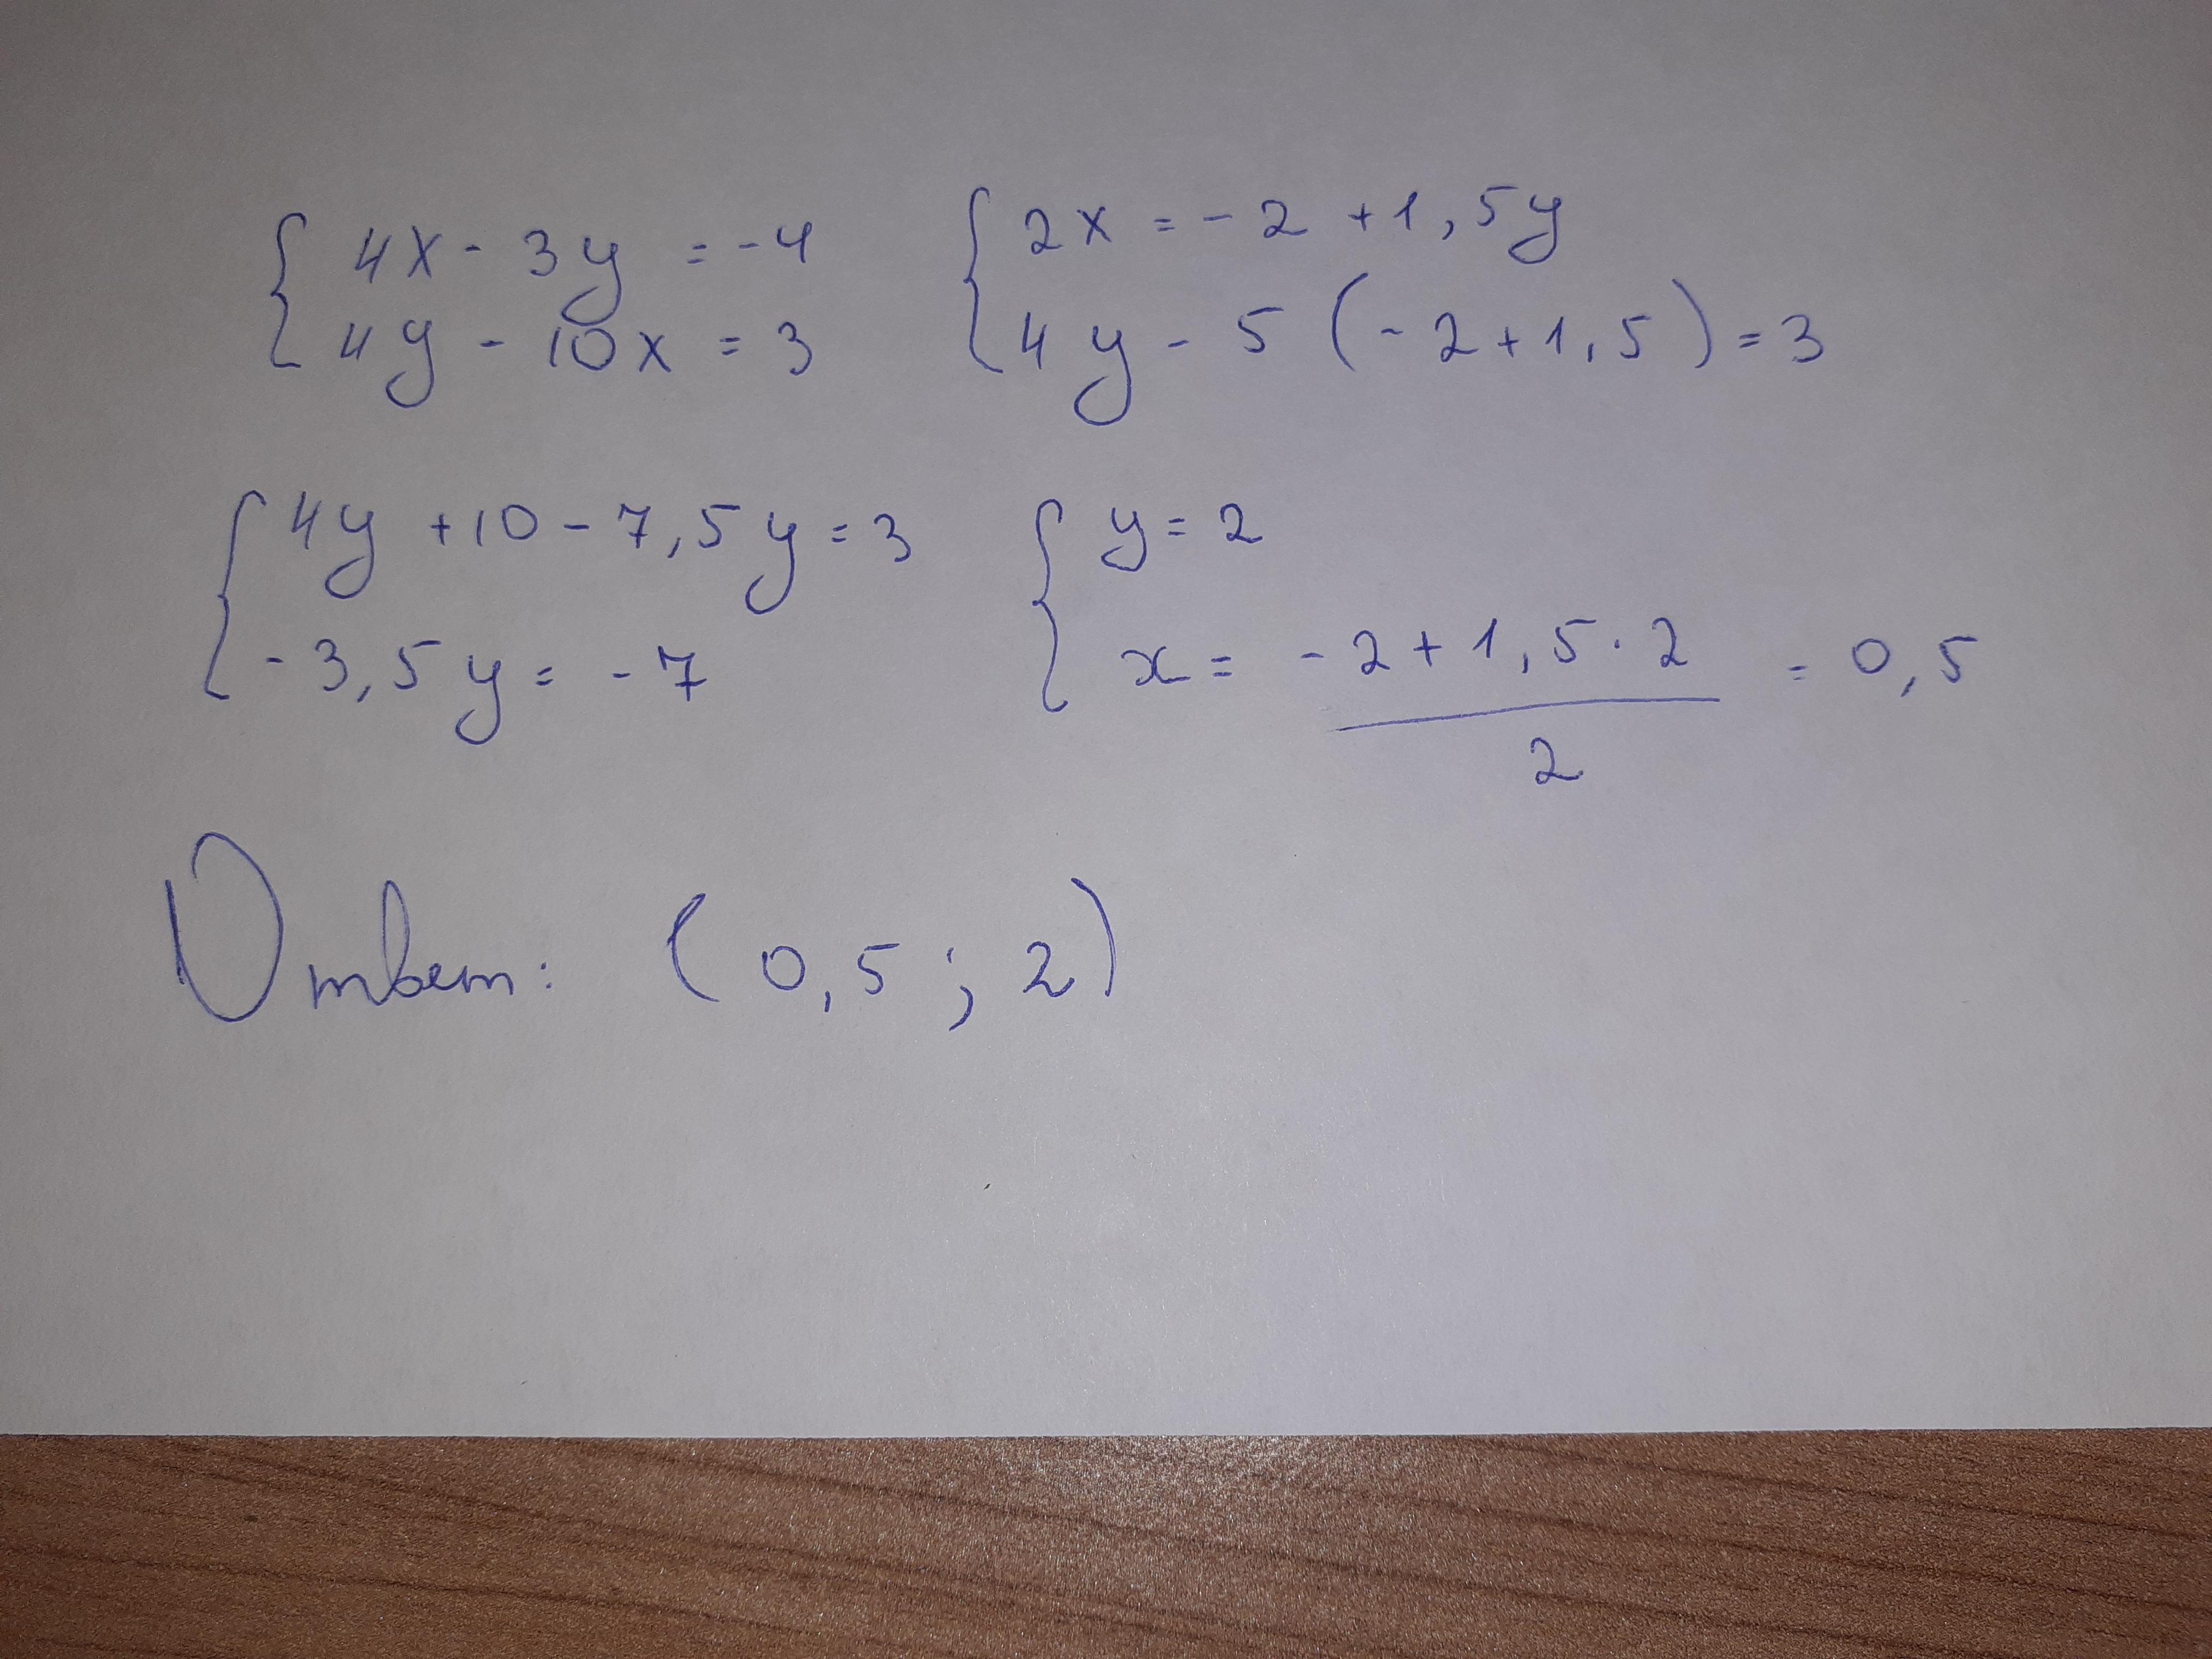 { 4x - 3y = -4
{ 4y - 10x = 3
{ 2x = -2 + 1,5y
{ 4y - 5 (-2 + 1,5) = 3
{ 4y + 10 - 7,5y = 3
{ -3,5y = -7
{ y = 2
{ x = (-2 + 1,5 · 2) / 2 = 0,5
Ответ: (0,5 ; 2)